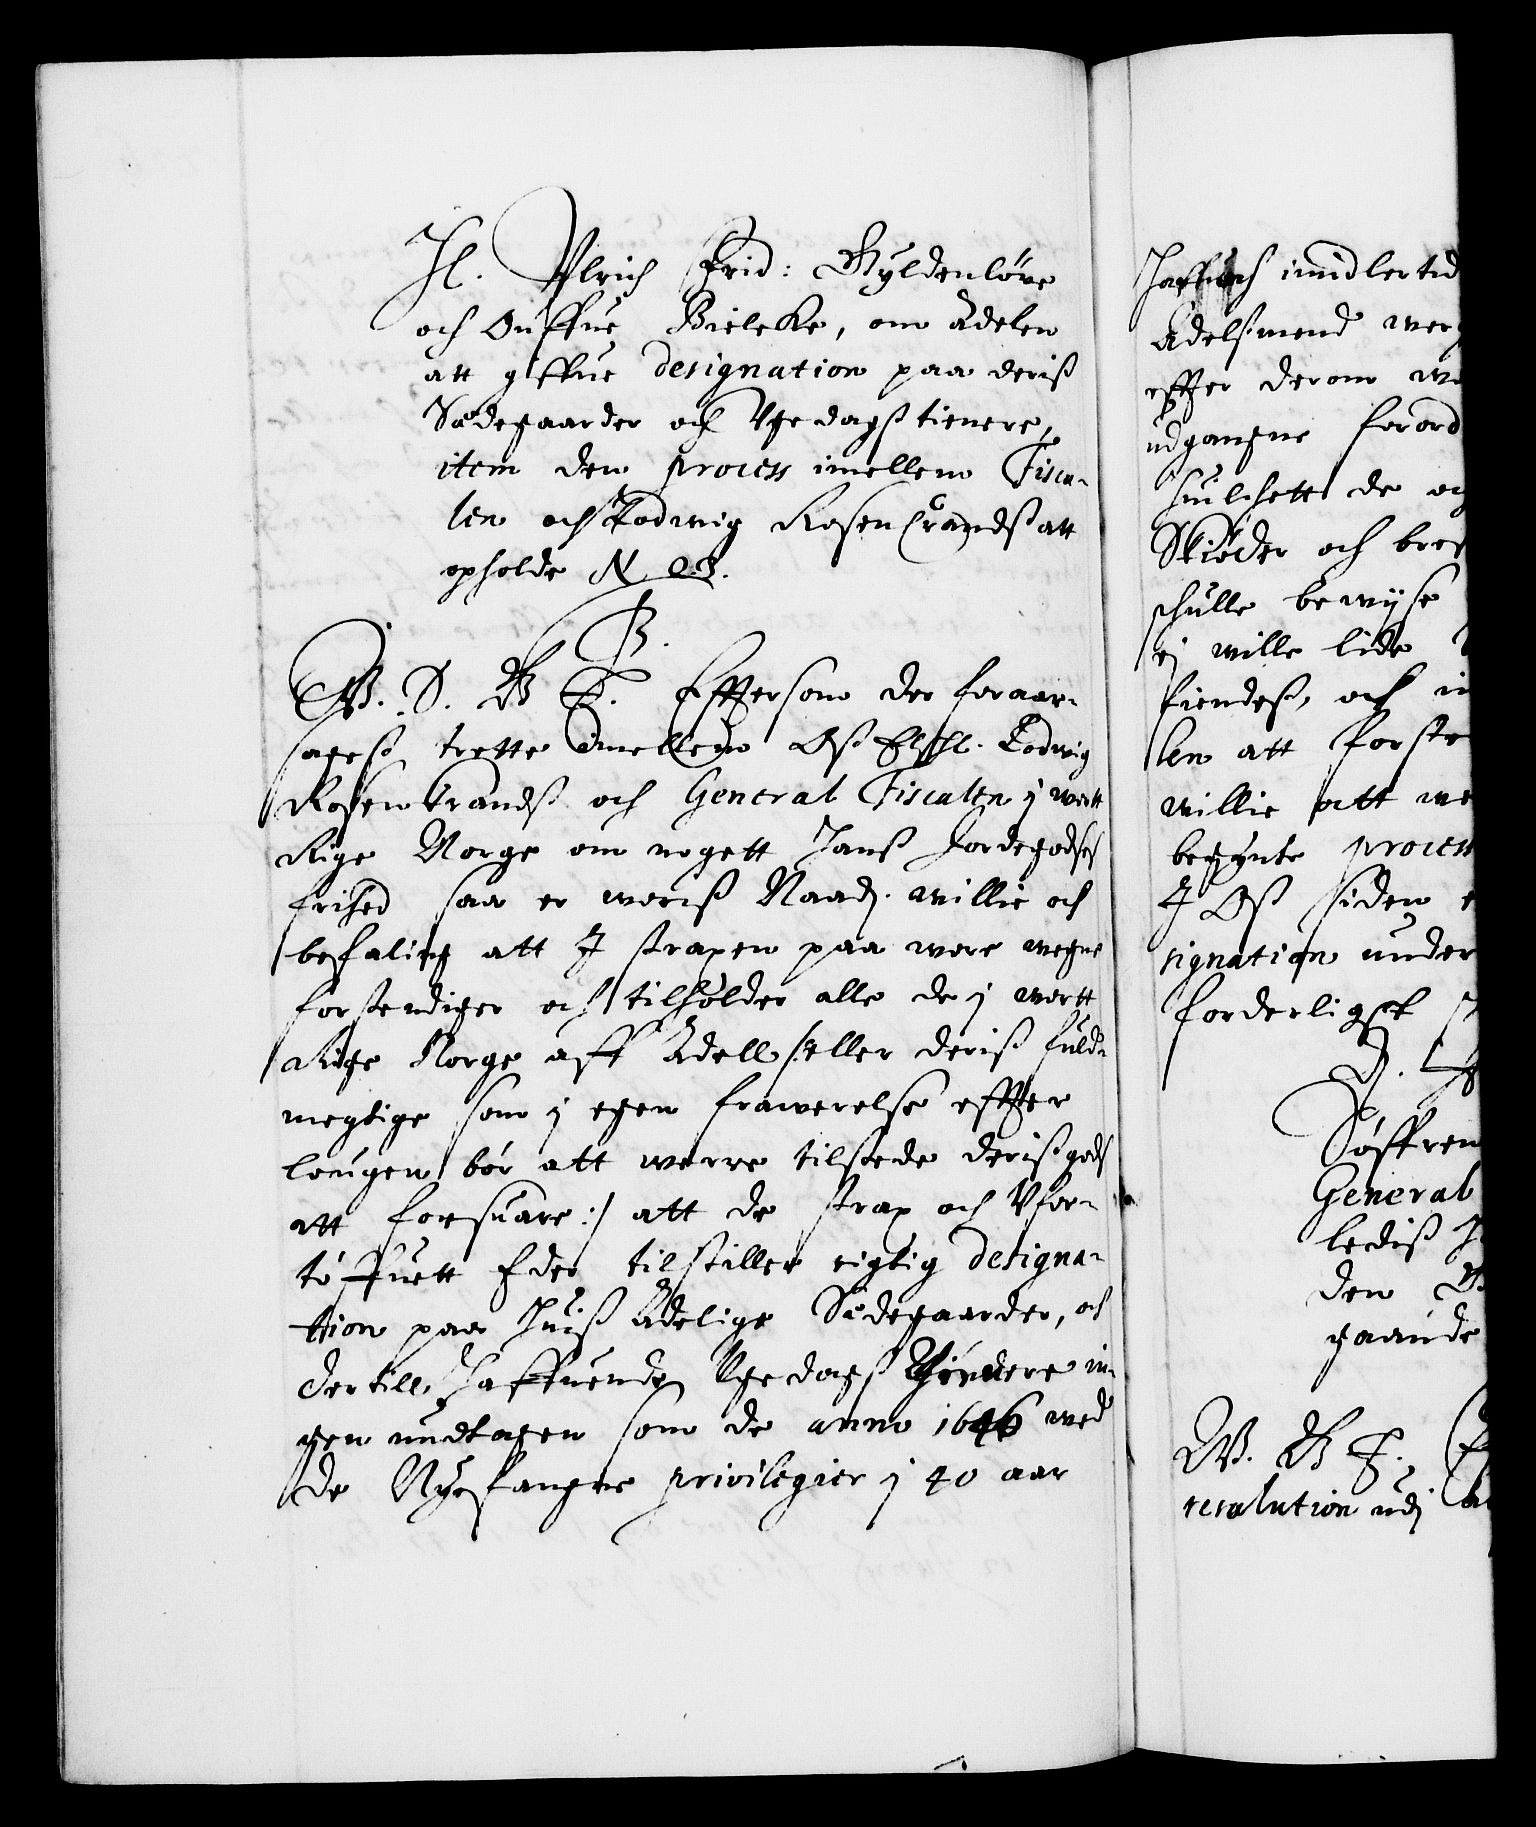 Hl. Vlrich Frid: Gyldenløve
och Ouffue Bielcke, om Adelen
att giffue designation paa deris
Sædegaarder och Vgedagstienere,
item den process imellem Fisca-
len och Lodwig Rosenkrandts att
opholde N 23.
B.
W. S. G F. Efftersom der foraar-
sages trette imellem Oss Elschl. Lodwig
Rosenkrandts och General Fiscalen j wortt
Rige Norge om nogett Hans Jordegodses
frihed saa er woris Naad. willie och
befaling att I straxen paa wore wegne
forstendiger och tilholder alle de j wortt
Rige Norge aff Adell /: eller deris fuld-
megtige som j egen frawerelse effter
lougen bör att werre tilstede deris gods
att forsuare :/ att de strax och Vfor-
töffuett Eder tilstiller rigtig designa-
tion paa Huis Adelige Sædegaarder, och
dertill Haffuende Vgedags Thienere in-
gen undtagen som de anno 1646 wed
de Nyefangne privilegier j 40 aar
Haffuer imidlertid
Adelsmend
effter derom
udgangne forord
huilchett de och
Skiöder och bref
schulle bewijse
ej wille lide
fiendes, och
len att forste
willie att
begynte process
I Oss siden
signation under
forderligst
Söffren
General
ledis
den
gaaende
W. G F.
resolution udj